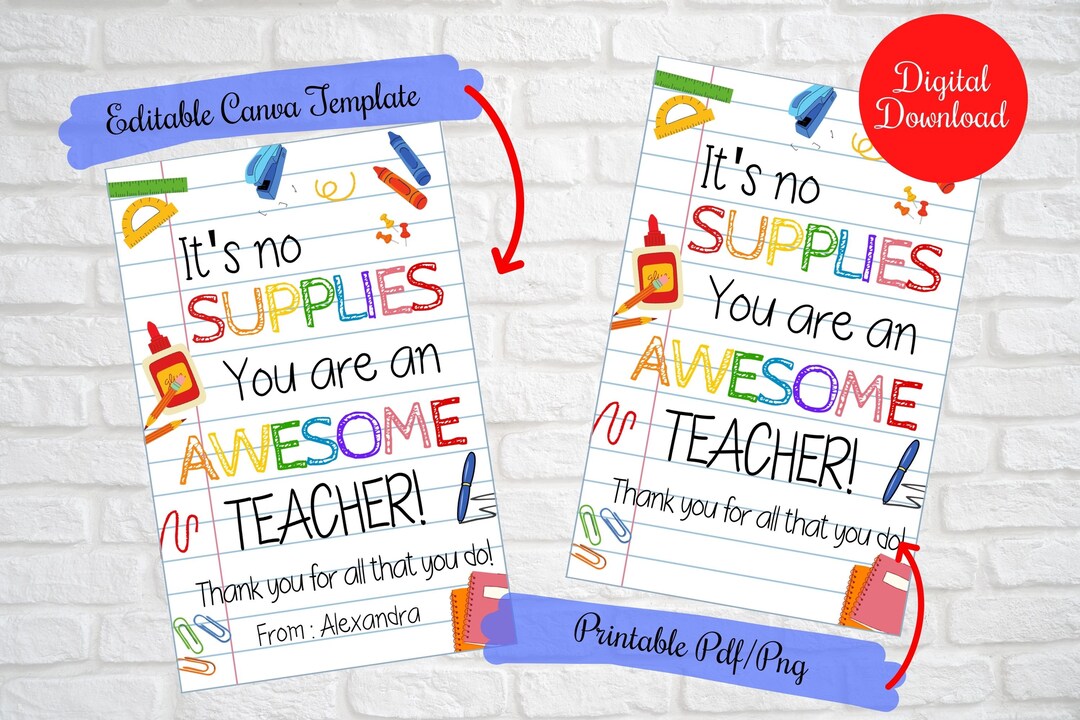 Editable Canva Template
It's no
SUPPLIES
You are an
AWESOME
TEACHER!
Thank you for all that you do!
From : Alexandra
glue
Digital
Download
It's no
SUPPLIES
You are an
AWESOME
TEACHER!
Thank you for all that you do!
glue
Printable Pdf/Png